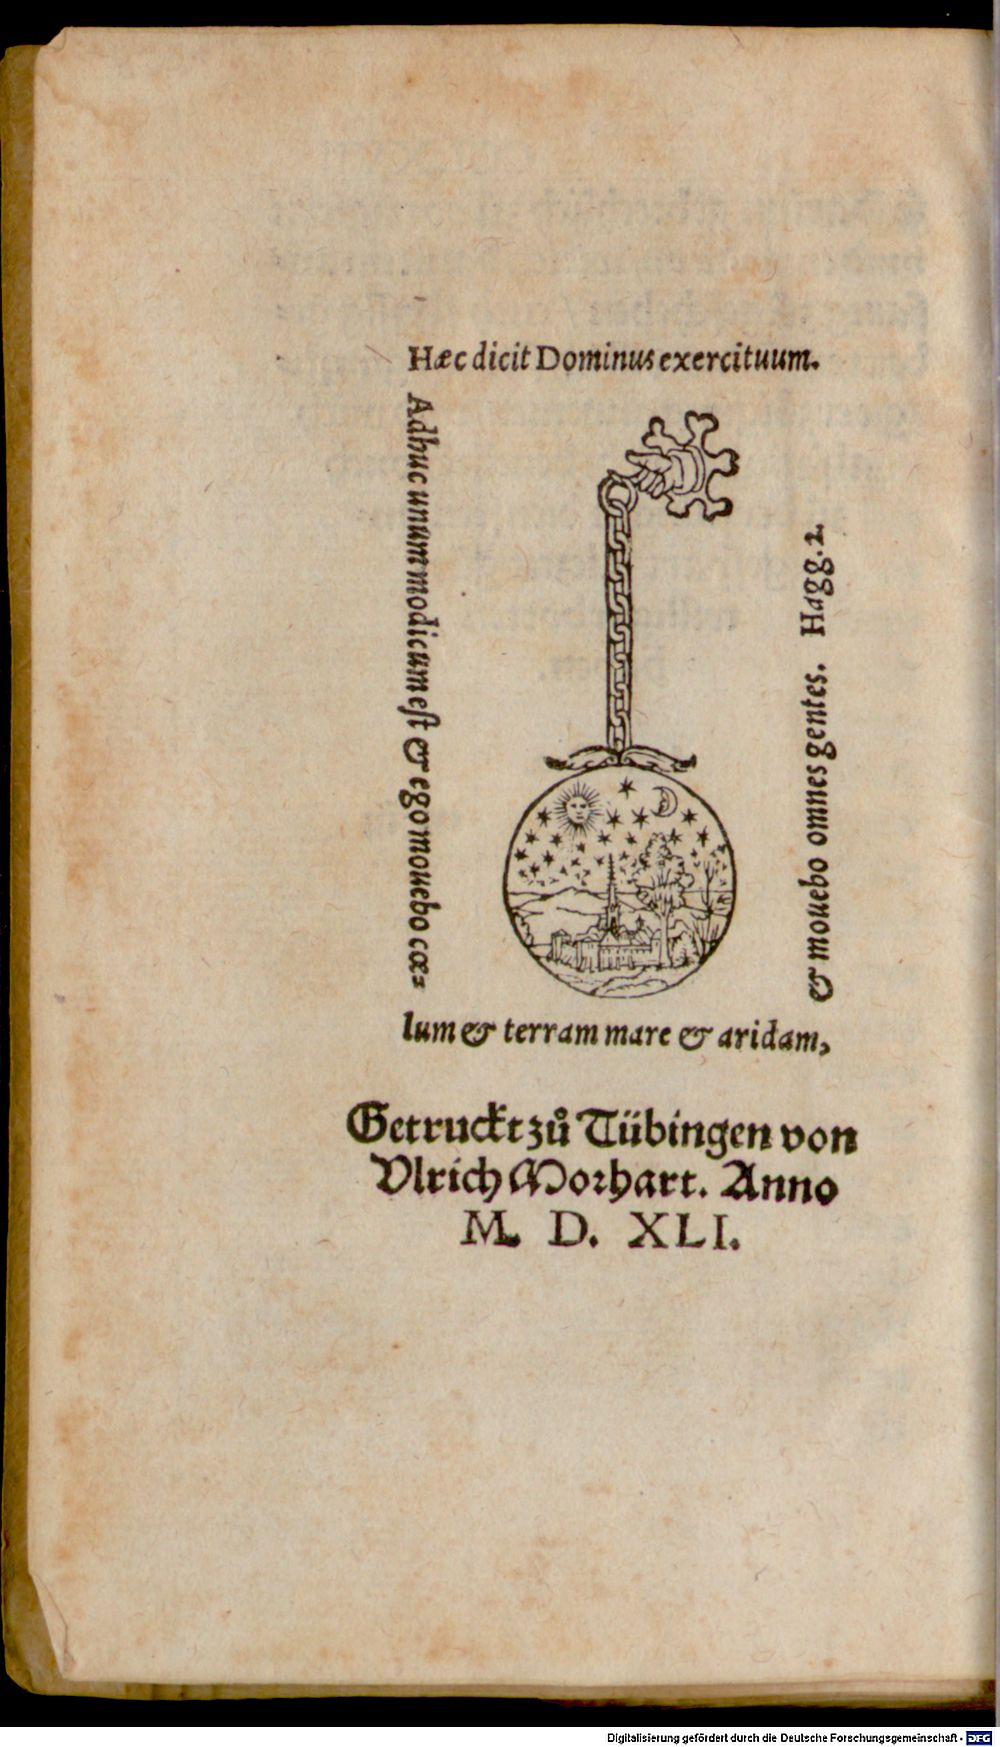 Hæc dicit Dominus exercituum.
Adhuc unum modicum est & ego mouebo cœ=
lum & terram mare & aridam,
& mouebo omnes gentes. Hagg. 2.
Getruckt zů Tübingen von
Vlrich Morhart. Anno
M. D. XLI.
Digitalisierung gefördert durch die Deutsche Forschungsgemeinschaft - DFG